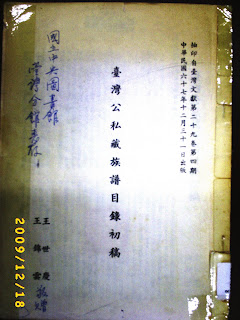 抽印自臺灣文獻第二十九卷第四期
中華民國六十七年十二月三十一日出版
臺灣公私藏族譜目錄初稿
國立中央圖書館
臺灣分館惠存
王世慶
王錦雲
敬贈
2009/12/18